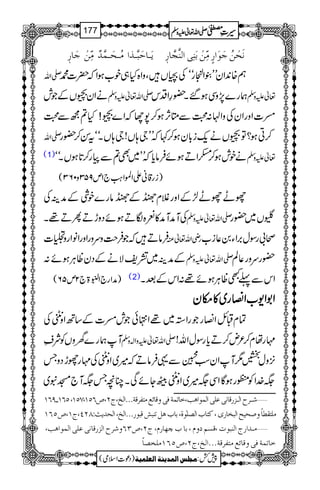 سیرتِ مصطفیٰ صلی اللہ تعالیٰ علیہ وسلم 177
نَحْنُ جَوَارٍ مِّنْ بَنِی النَّجَّارِ یَا حَبَّذَا مُحَمَّدٌ مِّنْ جَارِ
ہم خاندان ”بنوالنجار“ کی بچیاں ہیں، واہ کیا ہی خوب ہوا کہ حضرت محمد صلی اللہ
تعالیٰ علیہ وسلم ہمارے پڑوسی ہو گئے۔ حضور اقدس صلی اللہ تعالیٰ علیہ وسلم نے ان بچیوں کے جوش
مسرت اور ان کی والہانہ محبت سے متاثر ہو کر پوچھا کہ اے بچیو! کیا تم مجھ سے محبت
کرتی ہو؟ تو بچیوں نے یک زبان ہو کر کہا کہ ”جی ہاں! جی ہاں۔“ یہ سن کر حضور صلی اللہ
تعالیٰ علیہ وسلم نے خوش ہو کر مسکراتے ہوئے فرمایا کہ ”میں بھی تم سے پیار کرتا ہوں۔“ (1)
(زرقانی علی المواہب ج۱ ص۳۵۹ و ۳۶۰)
چھوٹے چھوٹے لڑکے اور غلام جھنڈ کے جھنڈ مارے خوشی کے مدینہ کی
گلیوں میں حضور صلی اللہ تعالیٰ علیہ وسلم کی آمد آمد کا نعرہ لگاتے ہوئے دوڑتے پھرتے تھے۔
صحابی رسول براء بن عازب رضی اللہ تعالیٰ عنہ فرماتے ہیں کہ جو فرحت و سرور اور انوار و تجلیات
حضور سرور عالم صلی اللہ تعالیٰ علیہ وسلم کے مدینہ میں تشریف لانے کے دن ظاہر ہوئے نہ
اس سے پہلے کبھی ظاہر ہوئے تھے نہ اس کے بعد۔ (2) (مدارج النبوۃ ج۲ ص۶۵)
ابوایوب انصاری کا مکان
تمام قبائل انصار جو راستہ میں تھے انتہائی جوش مسرت کے ساتھ اونٹنی کی
مہار تھام کر عرض کرتے یا رسول اللہ! صلی اللہ تعالیٰ علیہ وسلم آپ ہمارے گھروں کو شرف
نزول بخشیں مگر آپ ان سب محبین سے یہی فرماتے کہ میری اونٹنی کی مہار چھوڑ دو جس
جگہ خدا کو منظور ہو گا اسی جگہ میری اونٹنی بیٹھ جائے گی۔ چنانچہ جس جگہ آج مسجد نبوی
1 ……شرح الزرقانی علی المواہب، خاتمة فی وقائع متفرقة...الخ، ج۲، ص۱۵۶، ۱۵۷، ۱۶۵، ۱۶۹
ملتقطاً وصحیح البخاری، کتاب الصلوة، باب ھل تنبش قبور...الخ، الحدیث:۴۲۸، ج۱، ص۱۶۵
2 ……مدارج النبوت، قسم دوم، باب چہارم، ج۲، ص۶۳ وشرح الزرقانی علی المواہب،
خاتمة فی وقائع متفرقة...الخ، ج۲، ص۱۶۵ ملخصاً
پیش کش: مجلس المدینة العلمیة (دعوتِ اسلامی)